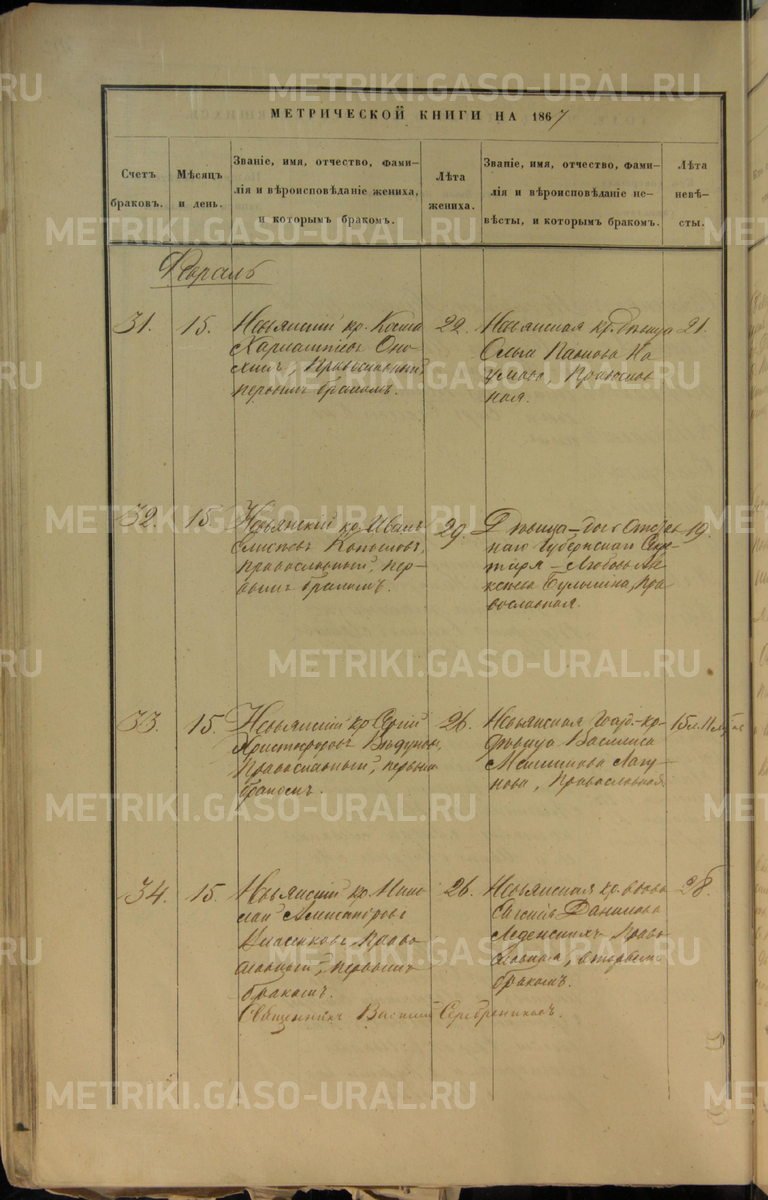 МЕТРИЧЕСКОЙ КНИГИ НА 1867
Счетъ браковъ.
Мѣсяцъ и день.
Званіе, имя, отчество, фами-
лія и вѣроисповѣданіе жениха,
и которымъ бракомъ.
Лѣта жениха.
Званіе, имя, отчество, фами-
лія и вѣроисповѣданіе не-
вѣсты, и которымъ бракомъ.
Лѣта невѣ-
сты.
Февраль
31.
15.
Невьянскій кр. Косма
Харлампіевъ
Православный,
первымъ бракомъ.
22.
Невьянская кр. дѣвица
Ольга Павлова На
умова, Православ
ная.
21.
32.
15.
Невьянскій кр. Иванъ
Копыловъ,
православный, пер-
вымъ бракомъ.
29.
Дѣвица – дочь Отстав
наго Губернскаго Секре-
таря – Любовь Але
ксѣева Пра
вославная.
19.
33.
15.
Невьянскій кр. Сергій
Христофоровъ
Православный, первымъ
бракомъ.
26.
Невьянская кр-
дѣвица Василиса
Лагу-
нова, Православная.
15 л. 11 м.
34.
15.
Невьянскій кр.
Александровъ
Право
славный, первымъ
бракомъ.
26.
Невьянская кр. вдова
Данилова
Право
славная, вторымъ
бракомъ.
28.
Священникъ Василій Серебренниковъ.
METRIKI.GASO-URAL.RU